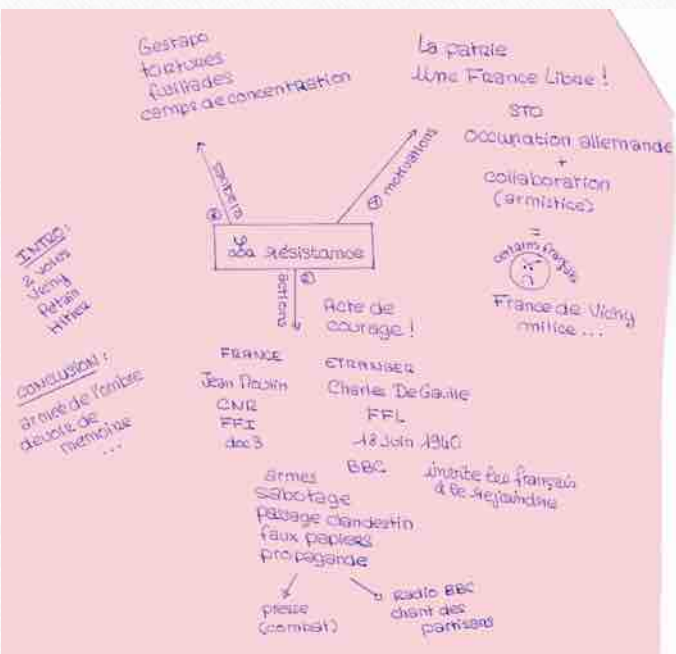 Gestapo
tortures
fusillades
camps de concentration
La patrie
Une France Libre !
STO
Occupation allemande
+
collaboration
(armistice)
=
certains français
France de Vichy
milice ...
① motivations
La Résistance
② actions
INTRO :
2 voies
Vichy
Pétain
Hitler
CONCLUSION :
armée de l'ombre
devoir de
mémoire
...
Acte de
courage !
FRANCE
Jean Moulin
CNR
FFI
doc 3
ETRANGER
Charles De Gaulle
FFL
18 Juin 1940
BBC
invite les français
à le rejoindre
armes
sabotage
passage clandestin
faux papiers
propagande
presse
(combat)
Radio BBC
chant des
partisans